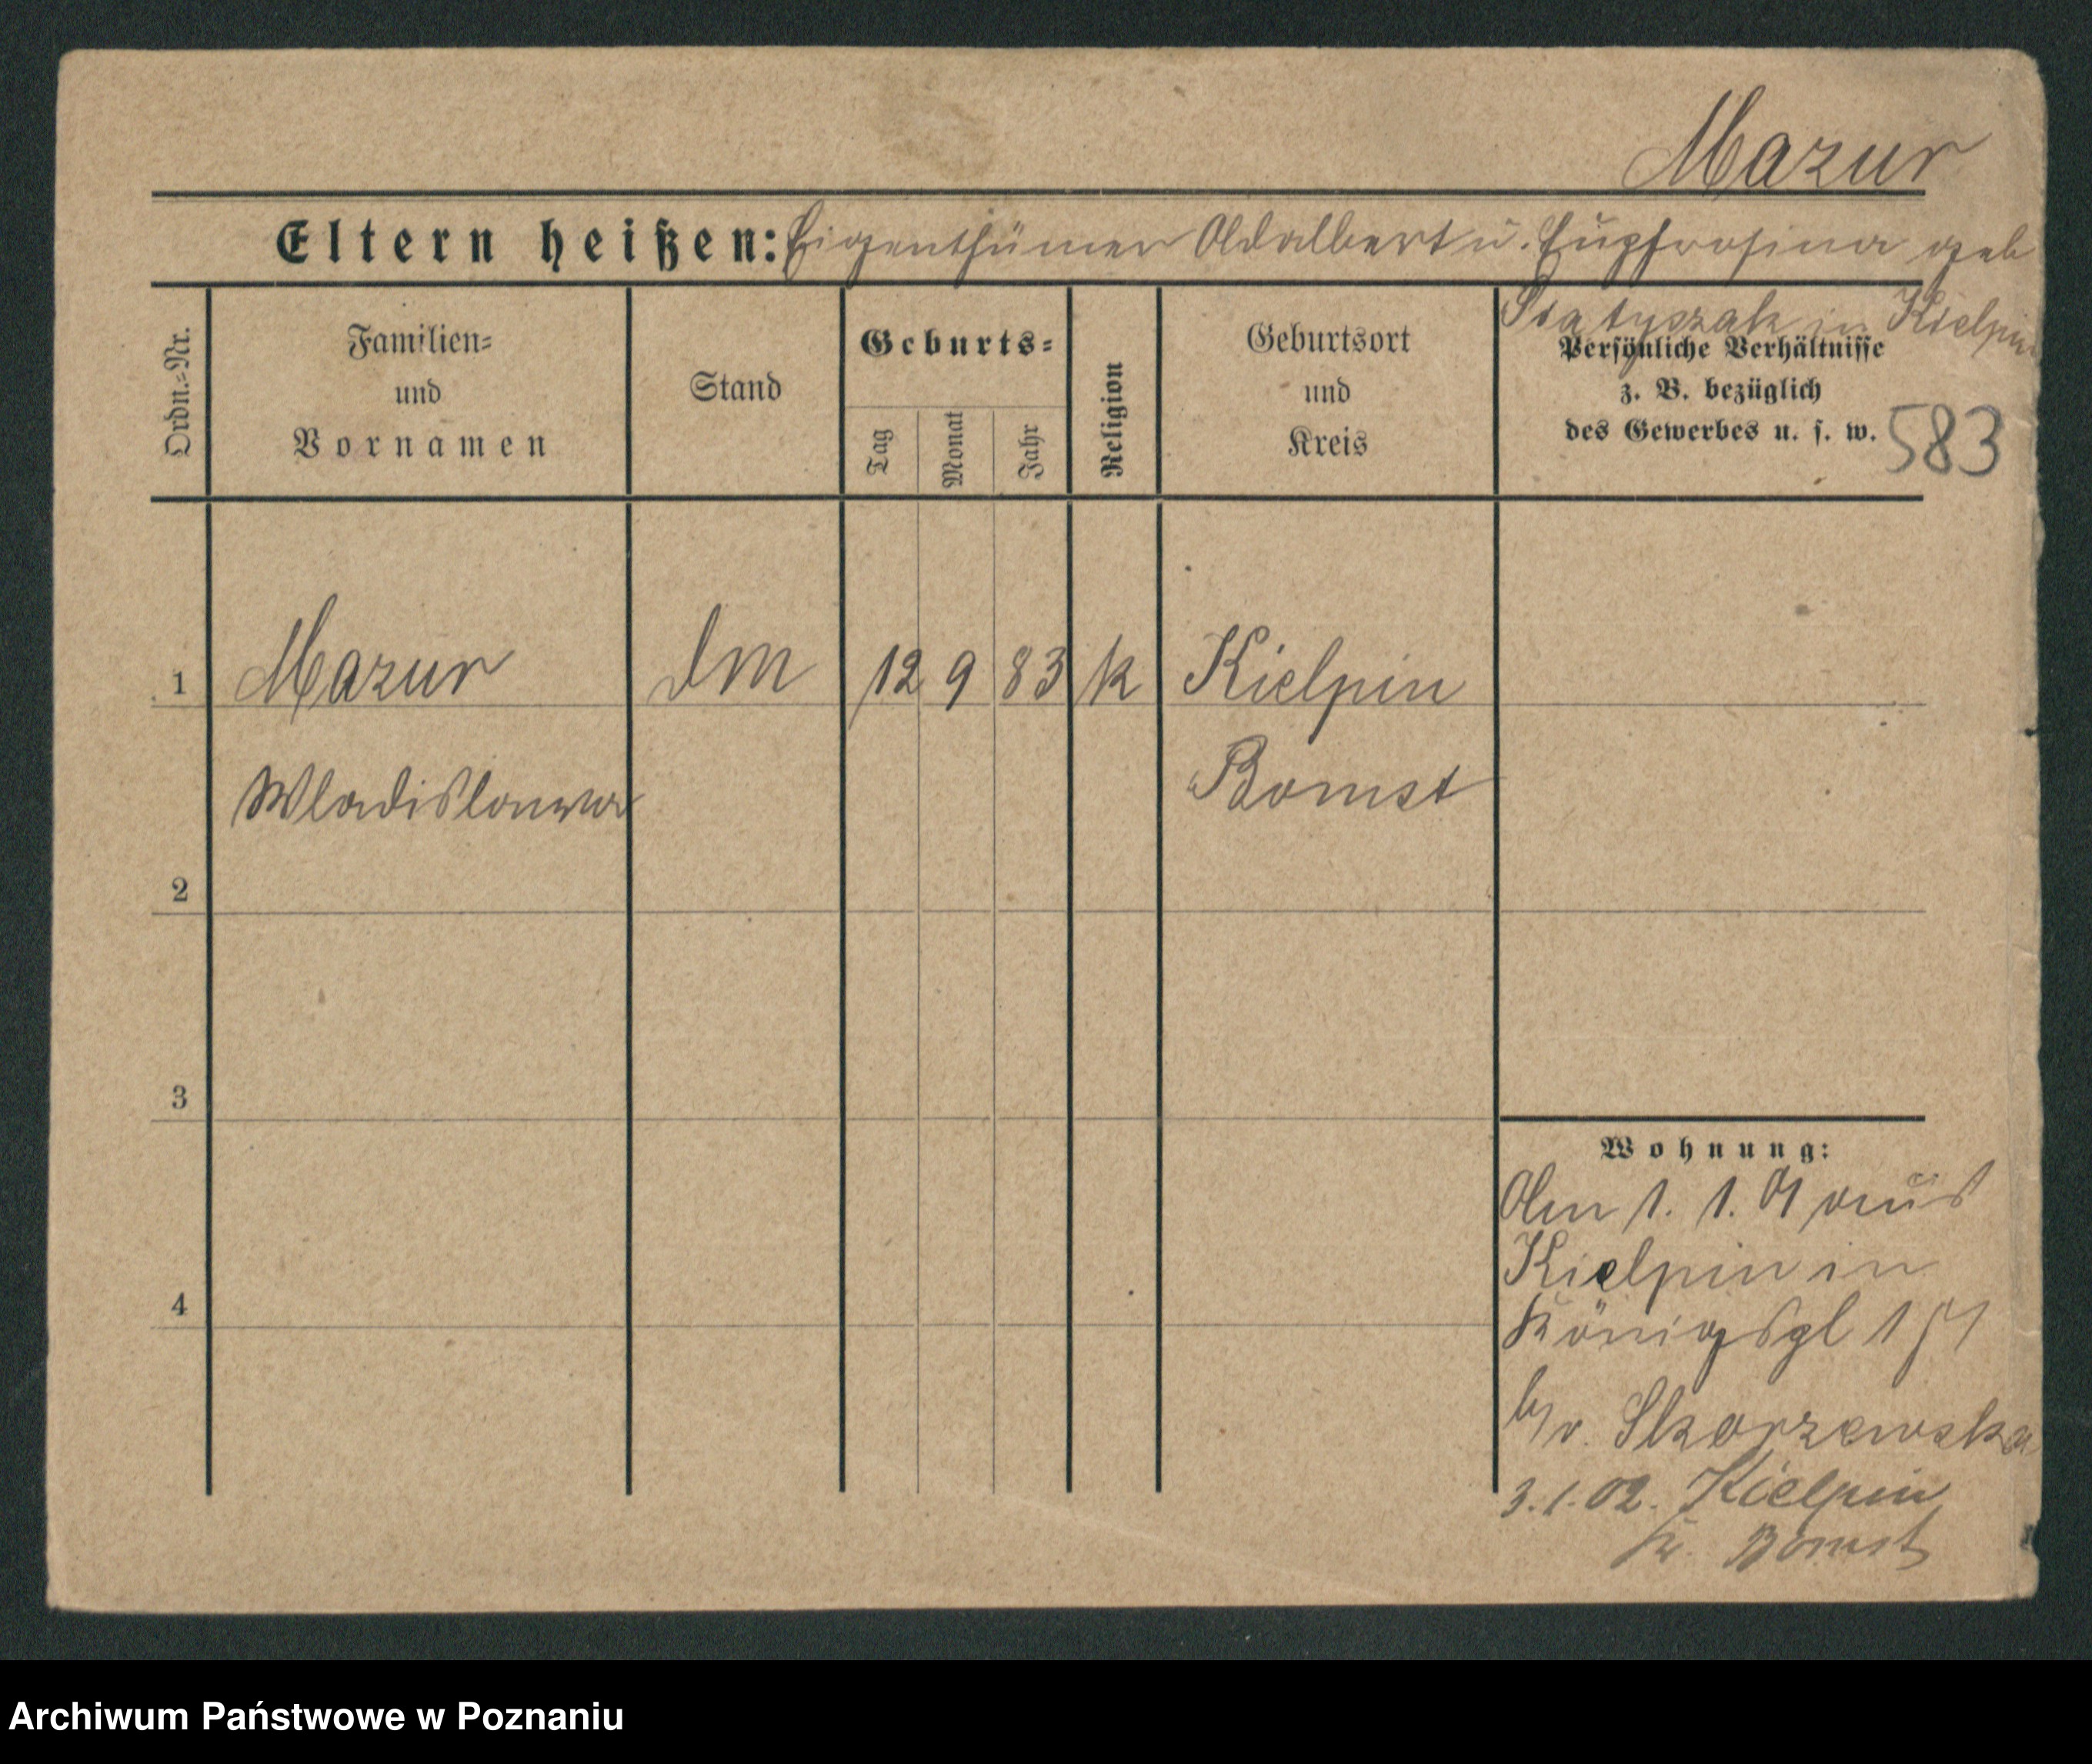 Mazur
Eltern heißen: Eigenthümer Adalbert u. Euphrosina geb
in Kielpin
Ordn.-Nr.
Familien-
und
Vornamen
Stand
Geburts-
Tag
Monat
Jahr
Religion
Geburtsort
und
Kreis
Persönliche Verhältnisse
z. B. bezüglich
des Gewerbes u. s. w.
583
1 Mazur Dm 12 9 83 k Kielpin
Wladislawa Bomst
2
3
4
Wohnung:
Am 1. 1. 01 aus
Kielpin in
Königspl
b/v. Skorzewska
3.1.02. Kielpin
Kr. Bomst
Archiwum Państwowe w Poznaniu